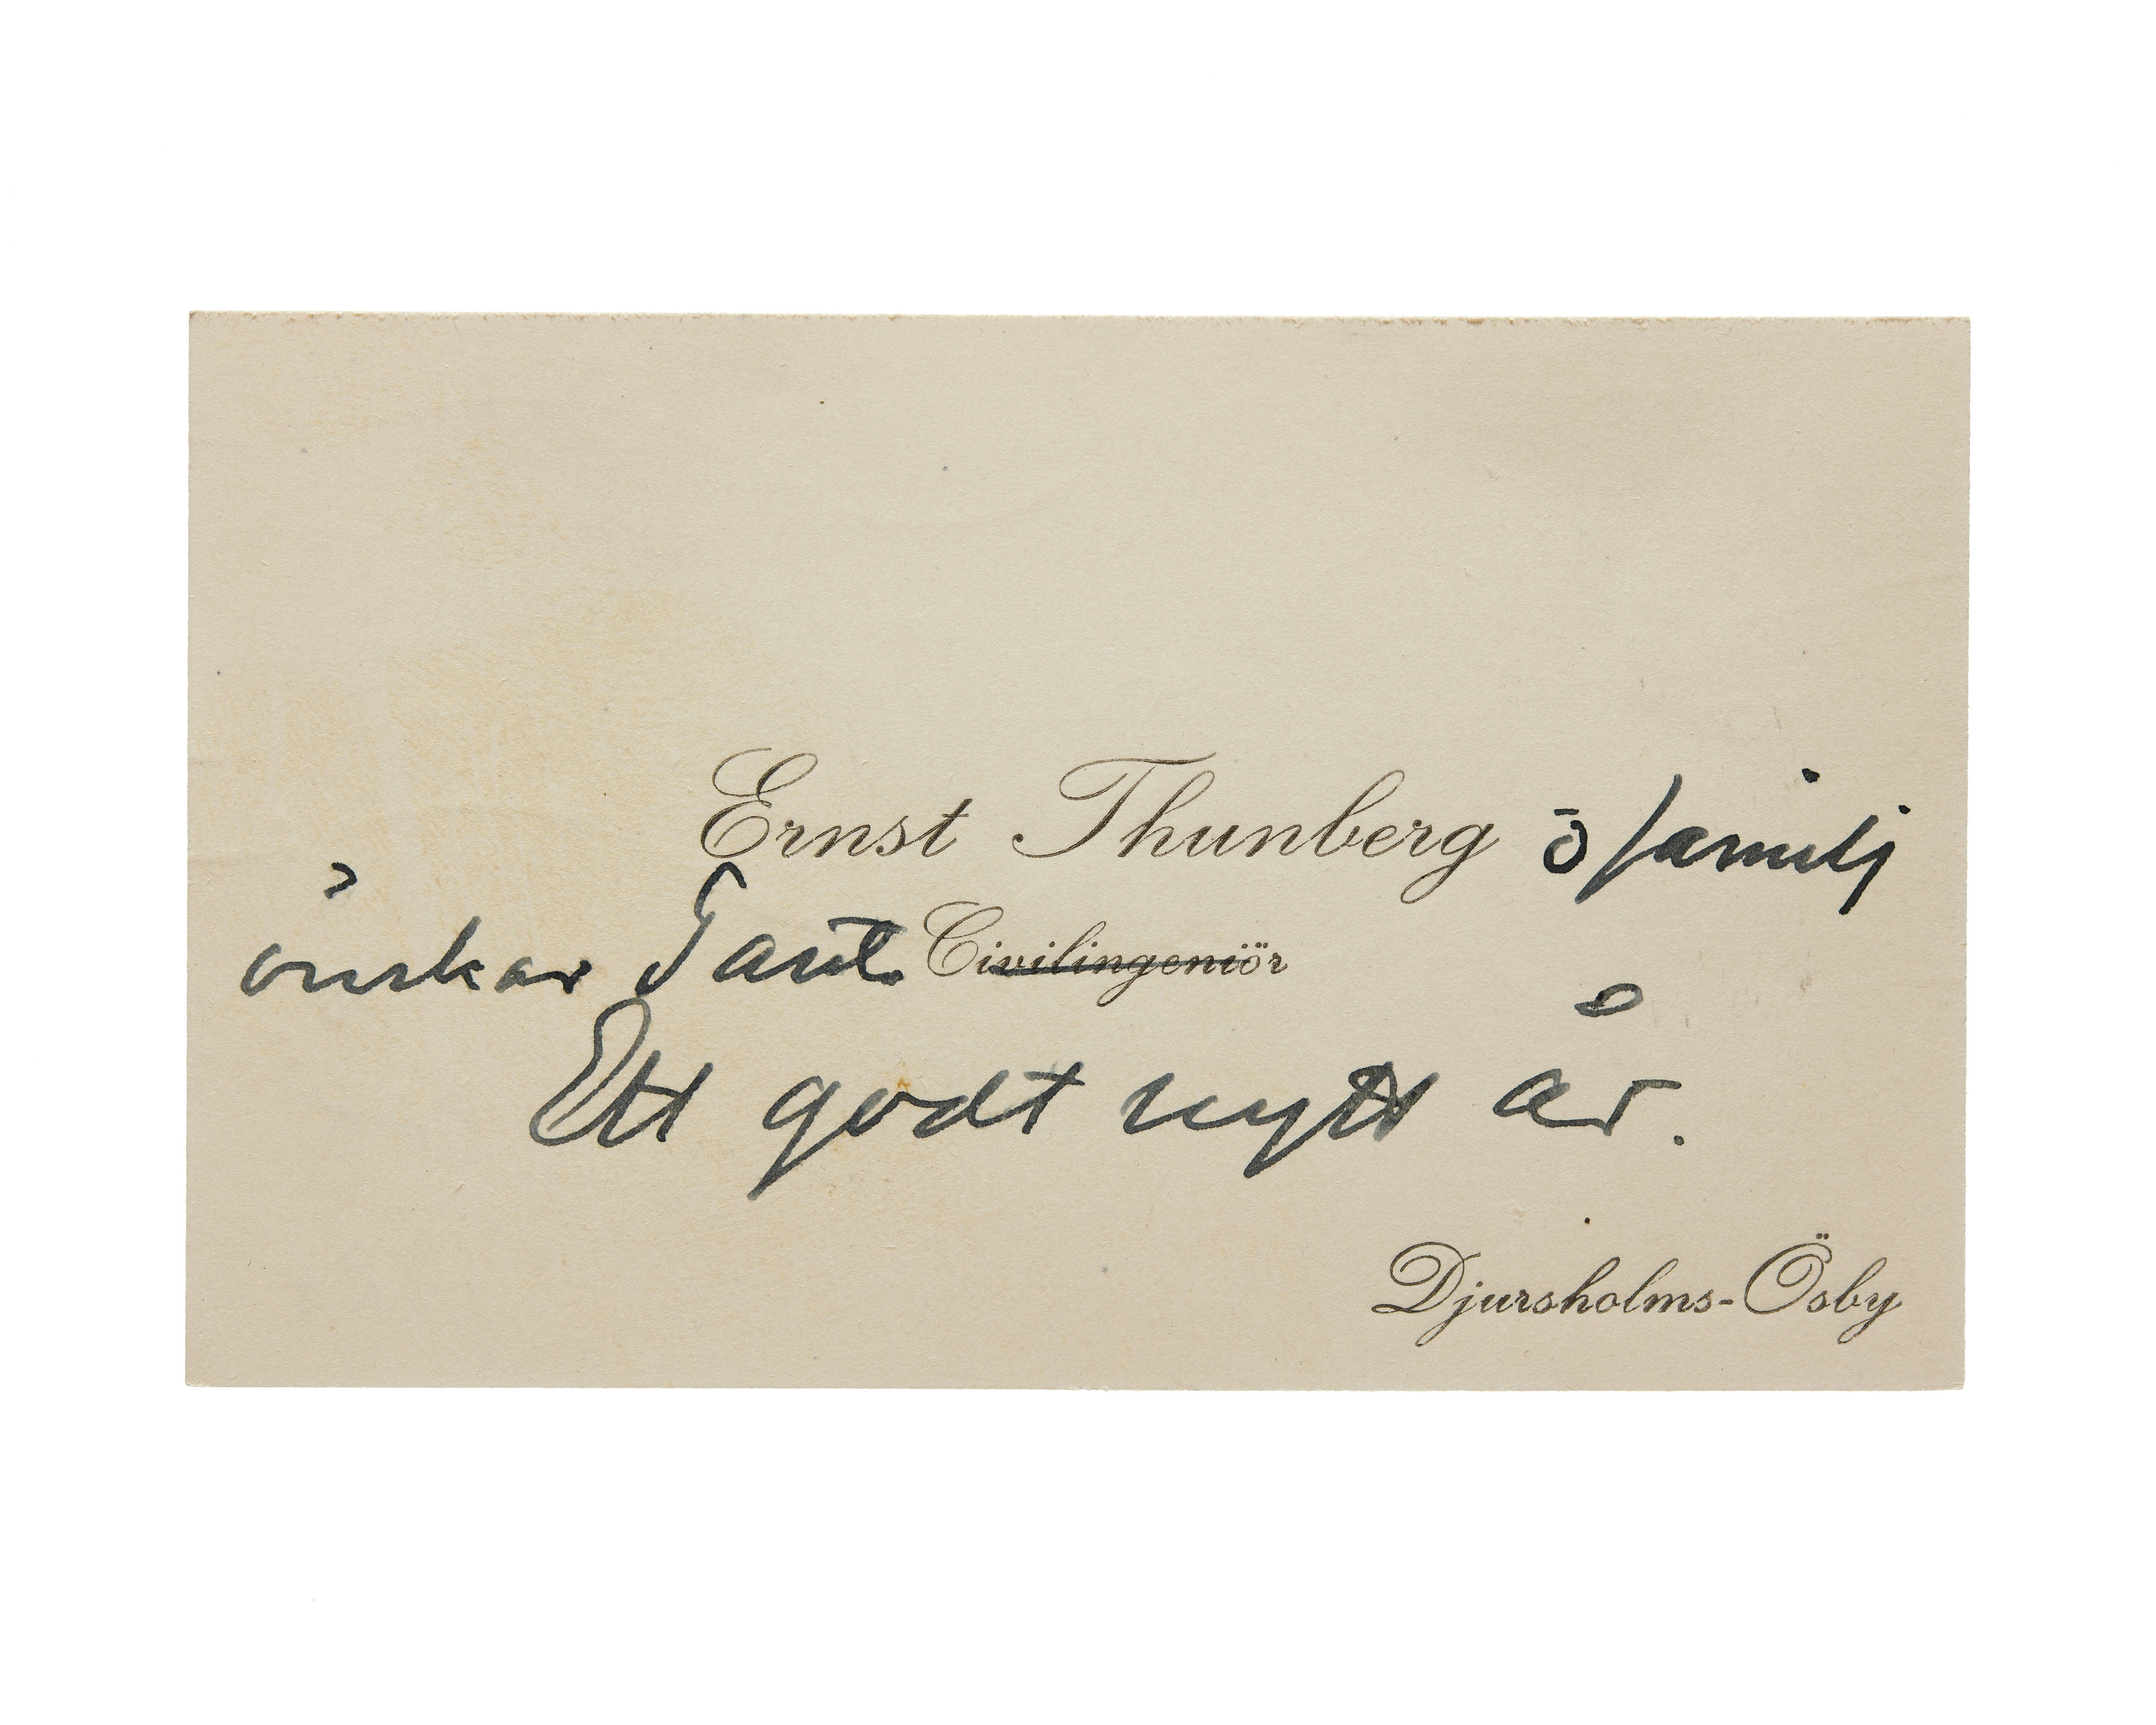 Ernst Thunberg o familj
önskar Tant Civilingeniör
Ett godt nytt år.
Djursholms-Ösby